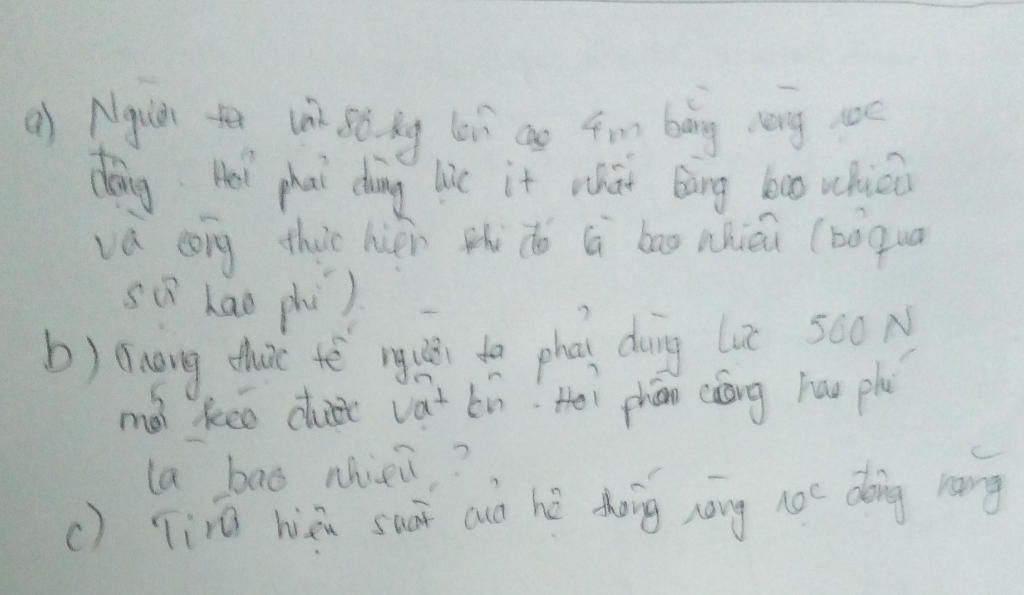 a) Người ta vật 80 kg lên cao 4m bằng ròng rọc
động. Hỏi phải dùng lực ít nhất bằng bao nhiêu
và công thực hiện khi đó là bao nhiêu (bỏ qua
sự hao phí)
b) Trong thức tế người ta phải dùng lực 500 N
mới kéo được vật lên. Hỏi phần công hao phí
là bao nhiêu?
c) Tính hiệu suất của hệ thống ròng rọc động